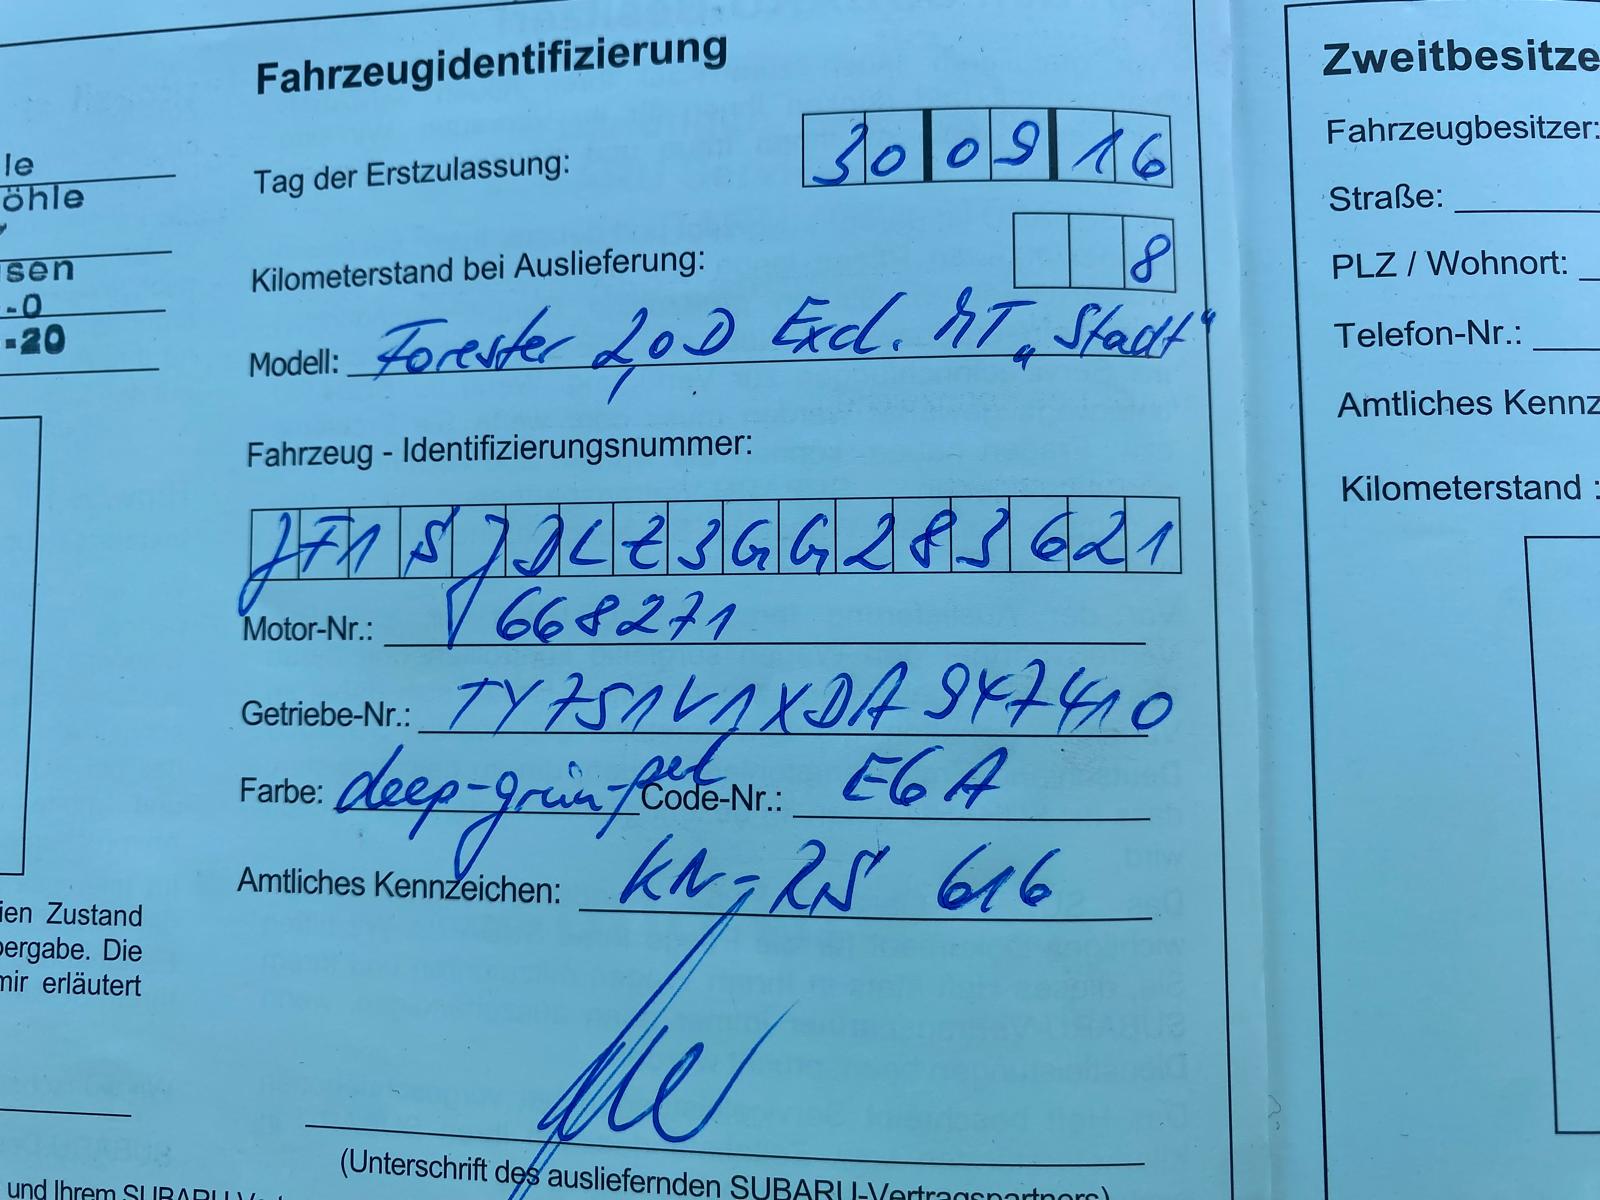 Fahrzeugidentifizierung
Tag der Erstzulassung: 30 09 16
Kilometerstand bei Auslieferung: 8
Modell: Forester 2,0D Excl. MT „Stadt"
Fahrzeug - Identifizierungsnummer:
JF1SJDLZ3GG283621
Motor-Nr.: 668271
Getriebe-Nr.: TY751V1XDA 947410
Farbe: deep-grün-perl Code-Nr.: EGA
Amtliches Kennzeichen: KN-RS 616
(Unterschrift des ausliefernden SUBARU-Vertragspartners)
le
öhle
sen
-0
-20
ien Zustand
ergabe. Die
mir erläutert
und Ihrem SUBARU
Zweitbesitze
Fahrzeugbesitzer:
Straße:
PLZ / Wohnort:
Telefon-Nr.:
Amtliches Kennz
Kilometerstand :